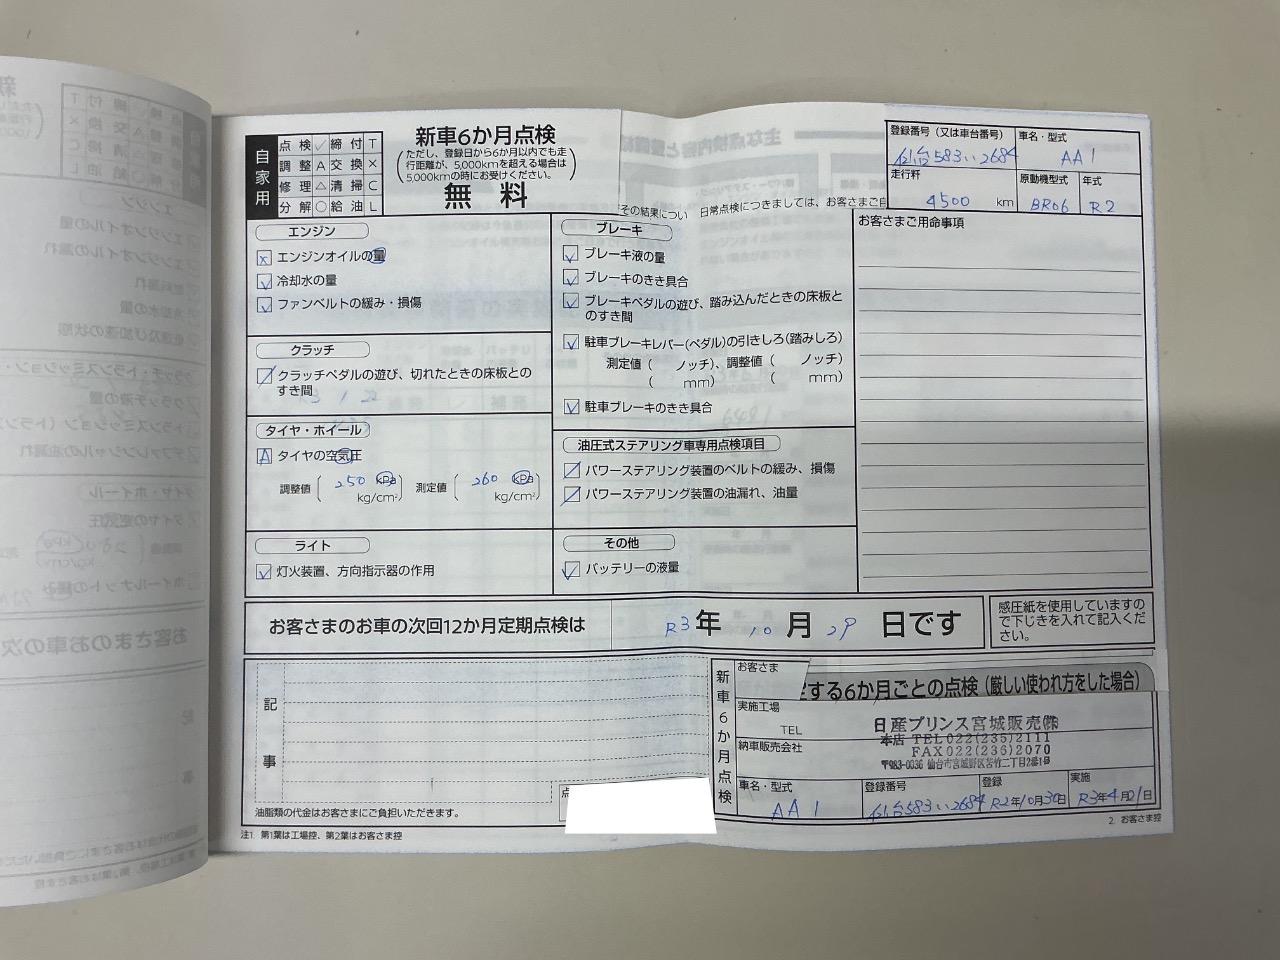 自家用
点検 ✓ 締付 T
調整 A 交換 ×
修理 △ 清掃 C
分解 ○ 給油 L
新車6か月点検
(ただし、登録日から6か月以内でも走
行距離が、5,000kmを超える場合は
5,000kmの時にお受けください。)
無料
その結果につい 日常点検につきましては、お客さまご自
登録番号(又は車台番号)
仙台583い2684
車名・型式
AA1
走行粁
4500 km
原動機型式
BR06
年式
R2
エンジン
× エンジンオイルの量
✓ 冷却水の量
✓ ファンベルトの緩み・損傷
クラッチ
クラッチペダルの遊び、切れたときの床板との
すき間
タイヤ・ホイール
A タイヤの空気圧
調整値 ( 250 kPa kg/cm² ) 測定値 ( 260 kPa kg/cm² )
ライト
✓ 灯火装置、方向指示器の作用
ブレーキ
✓ ブレーキ液の量
✓ ブレーキのきき具合
✓ ブレーキペダルの遊び、踏み込んだときの床板と
のすき間
✓ 駐車ブレーキレバー(ペダル)の引きしろ(踏みしろ)
測定値( ノッチ)、調整値( ノッチ)
( mm) ( mm)
✓ 駐車ブレーキのきき具合
油圧式ステアリング車専用点検項目
パワーステアリング装置のベルトの緩み、損傷
パワーステアリング装置の油漏れ、油量
その他
✓ バッテリーの液量
お客さまご用命事項
お客さまのお車の次回12か月定期点検は R3年 10月 29日です
感圧紙を使用していますの
で下じきを入れて記入くだ
さい。
記事
油脂類の代金はお客さまにご負担いただきます。
点
新車6か月点検
お客さま
定する6か月ごとの点検(厳しい使われ方をした場合)
実施工場
TEL
納車販売会社
日産プリンス宮城販売㈱
本店 TEL022(235)2111
FAX022(236)2070
〒983-0036 仙台市宮城野区苦竹二丁目2番1号
車名・型式
AA1
登録番号
仙台583い2684
登録
R2年10月30日
実施
R3年4月21日
注1. 第1葉は工場控、第2葉はお客さま控
2. お客さま控